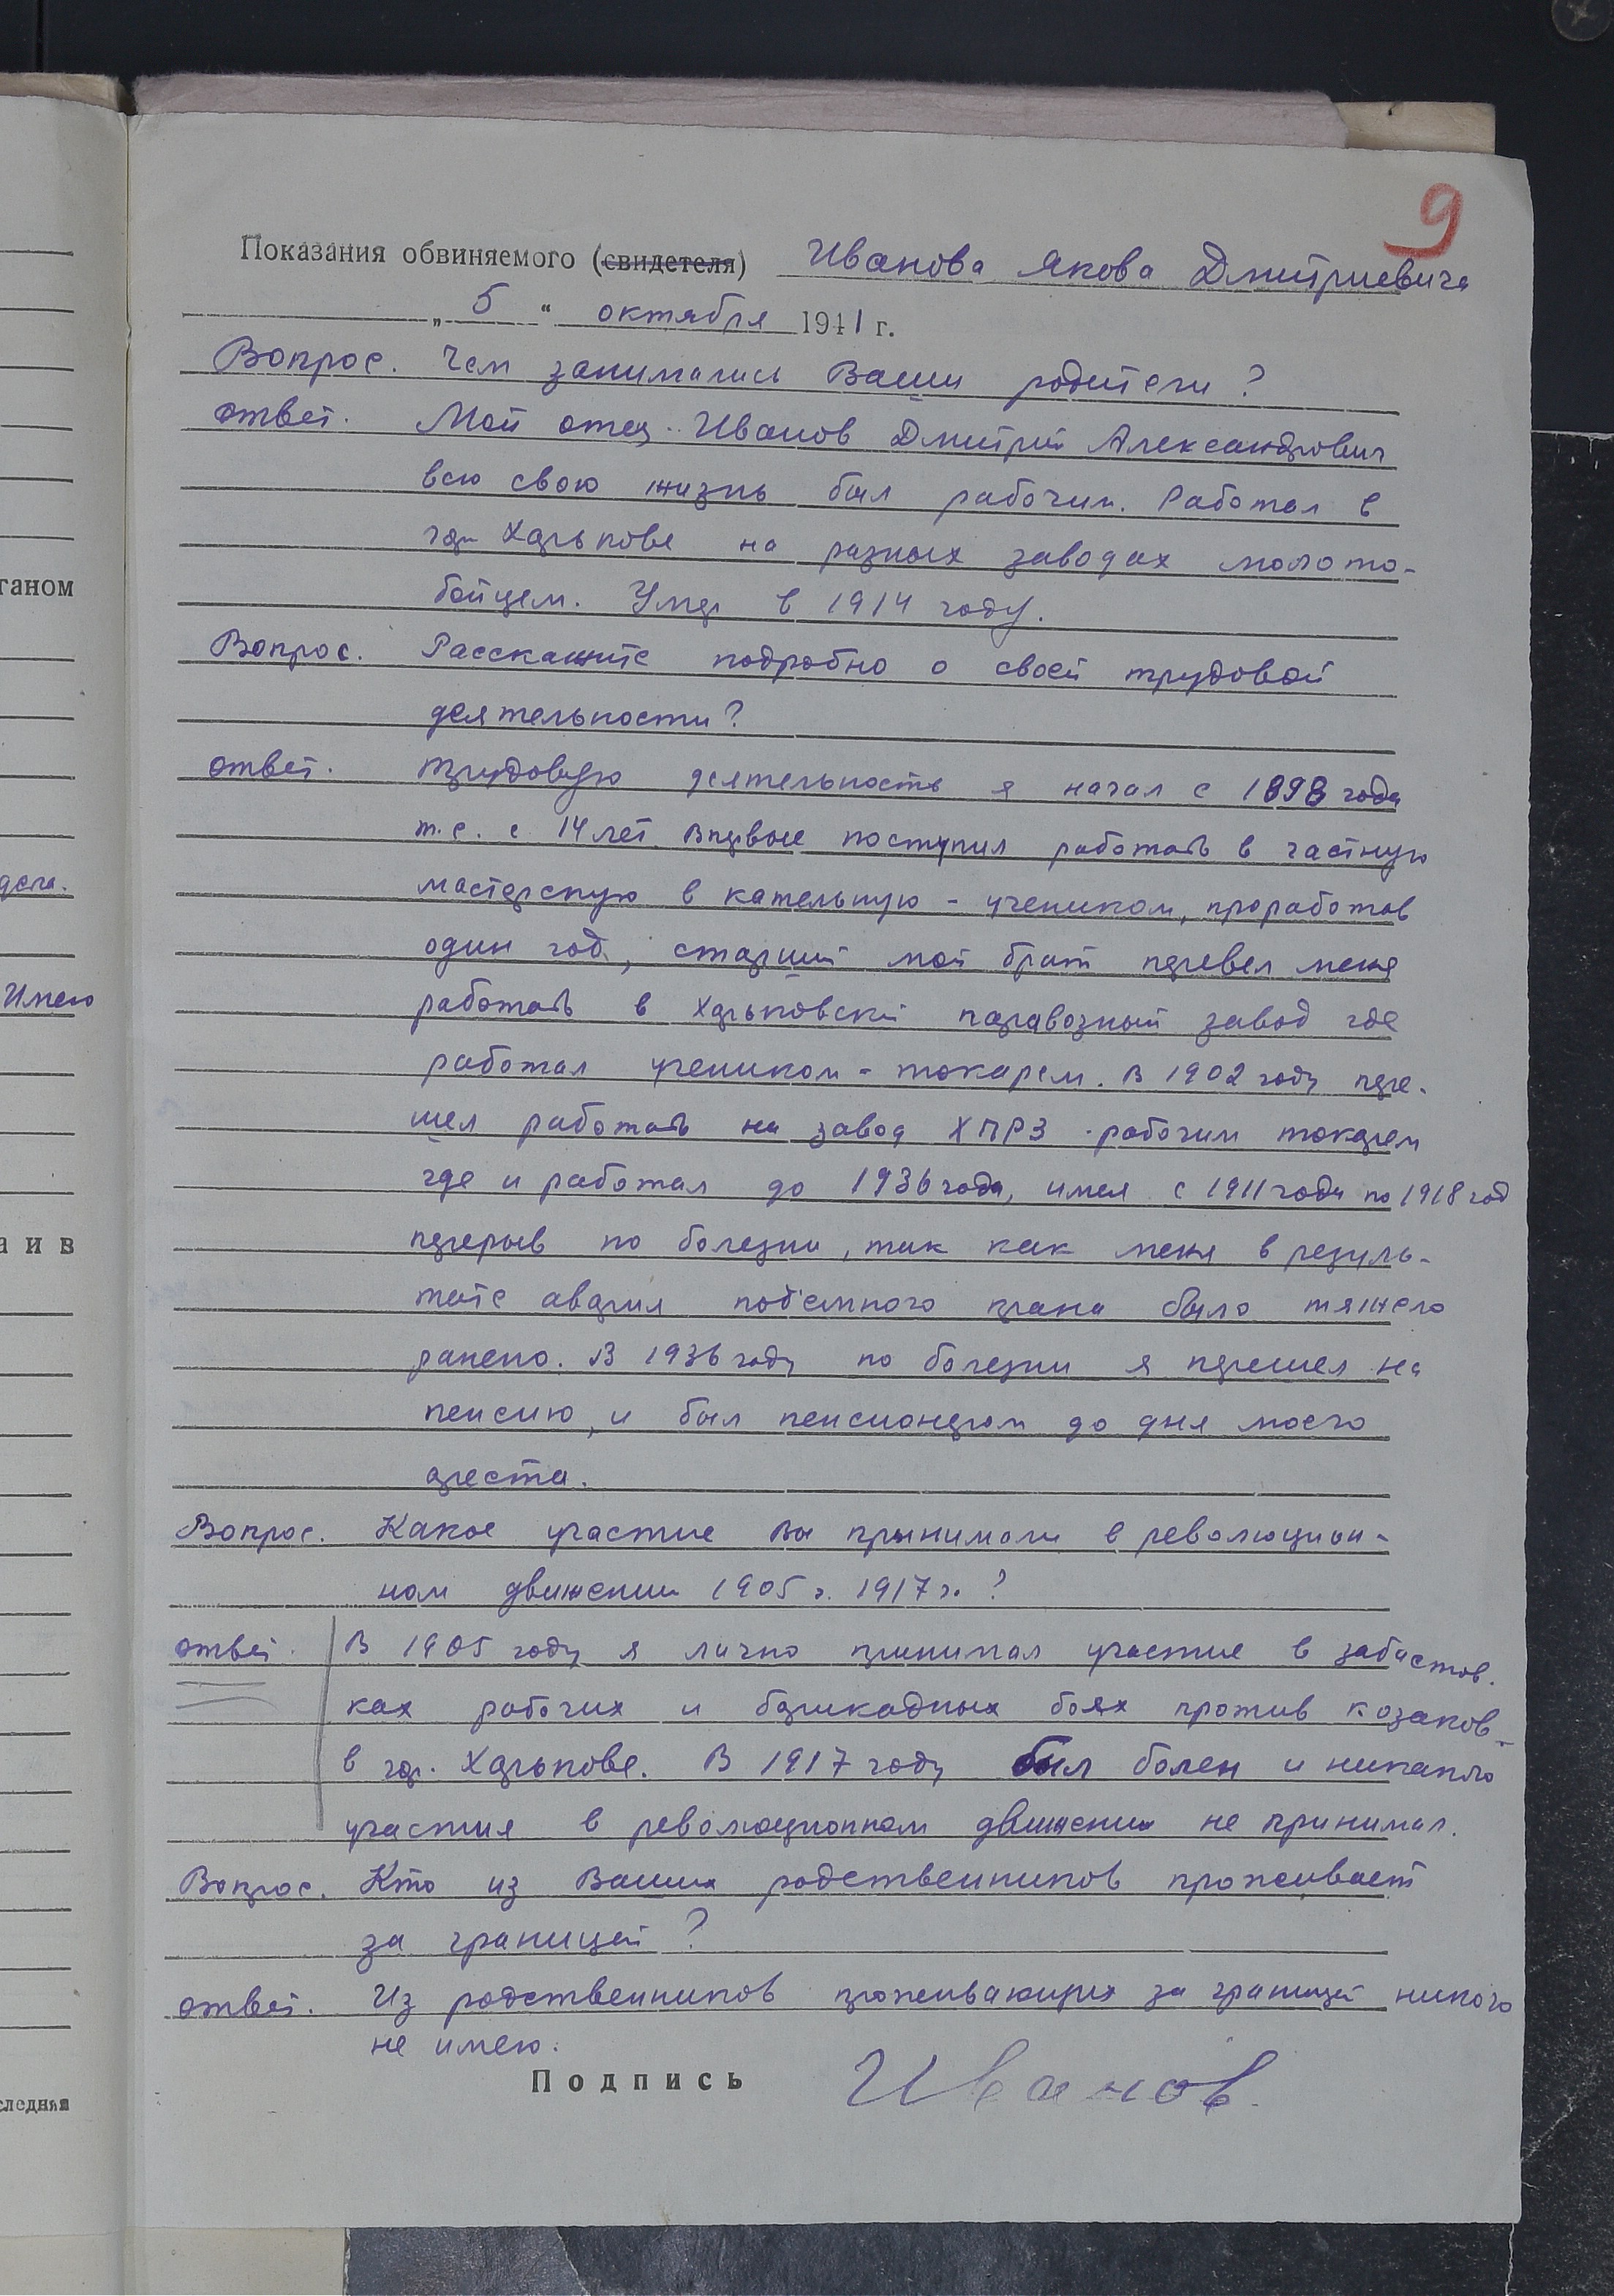 9
Показания обвиняемого (свидетеля) Иванова Якова Дмитриевича
„ 5 “ октября 1941 г.
Вопрос. Чем занимались Ваши родители?
ответ. Мой отец - Иванов Дмитрий Александрович
всю свою жизнь был рабочим. Работал в
гор. Харькове на разных заводах молото-
бойцем. Умер в 1914 году.
Вопрос. Расскажите подробно о своей трудовой
деятельности?
ответ. Трудовую деятельность я начал с 1898 года
т.е. с 14 лет. Впервые поступил работать в частную
мастерскую в кательную - учеником, проработав
один год, старший мой брат перевел меня
работать в Харьковский паравозный завод где
работал учеником - токарем. В 1902 году пере-
шел работать на завод ХПРЗ - рабочим токарем
где и работал до 1936 года, имея с 1911 года по 1918 год
перерыв по болезни, так как меня в резуль-
тате аварии под'емного крана было тяжело
ранено. В 1936 году по болезни я перешел на
пенсию, и был пенсионером до дня моего
ареста.
Вопрос. Какое участие Вы принимали в революцион-
ном движении 1905 г. 1917 г. ?
ответ. В 1905 году я лично принимал участие в забастов-
ках рабочих и барикадных боях против козаков
в гор. Харькове. В 1917 году был болен и никакого
участия в революционном движении не принимал.
Вопрос. Кто из Ваших родственников проживает
за границей?
ответ. Из родственников проживающих за границей никого
не имею.
Подпись Иванов.
ганом
дела.
Имею
а и в
следняя